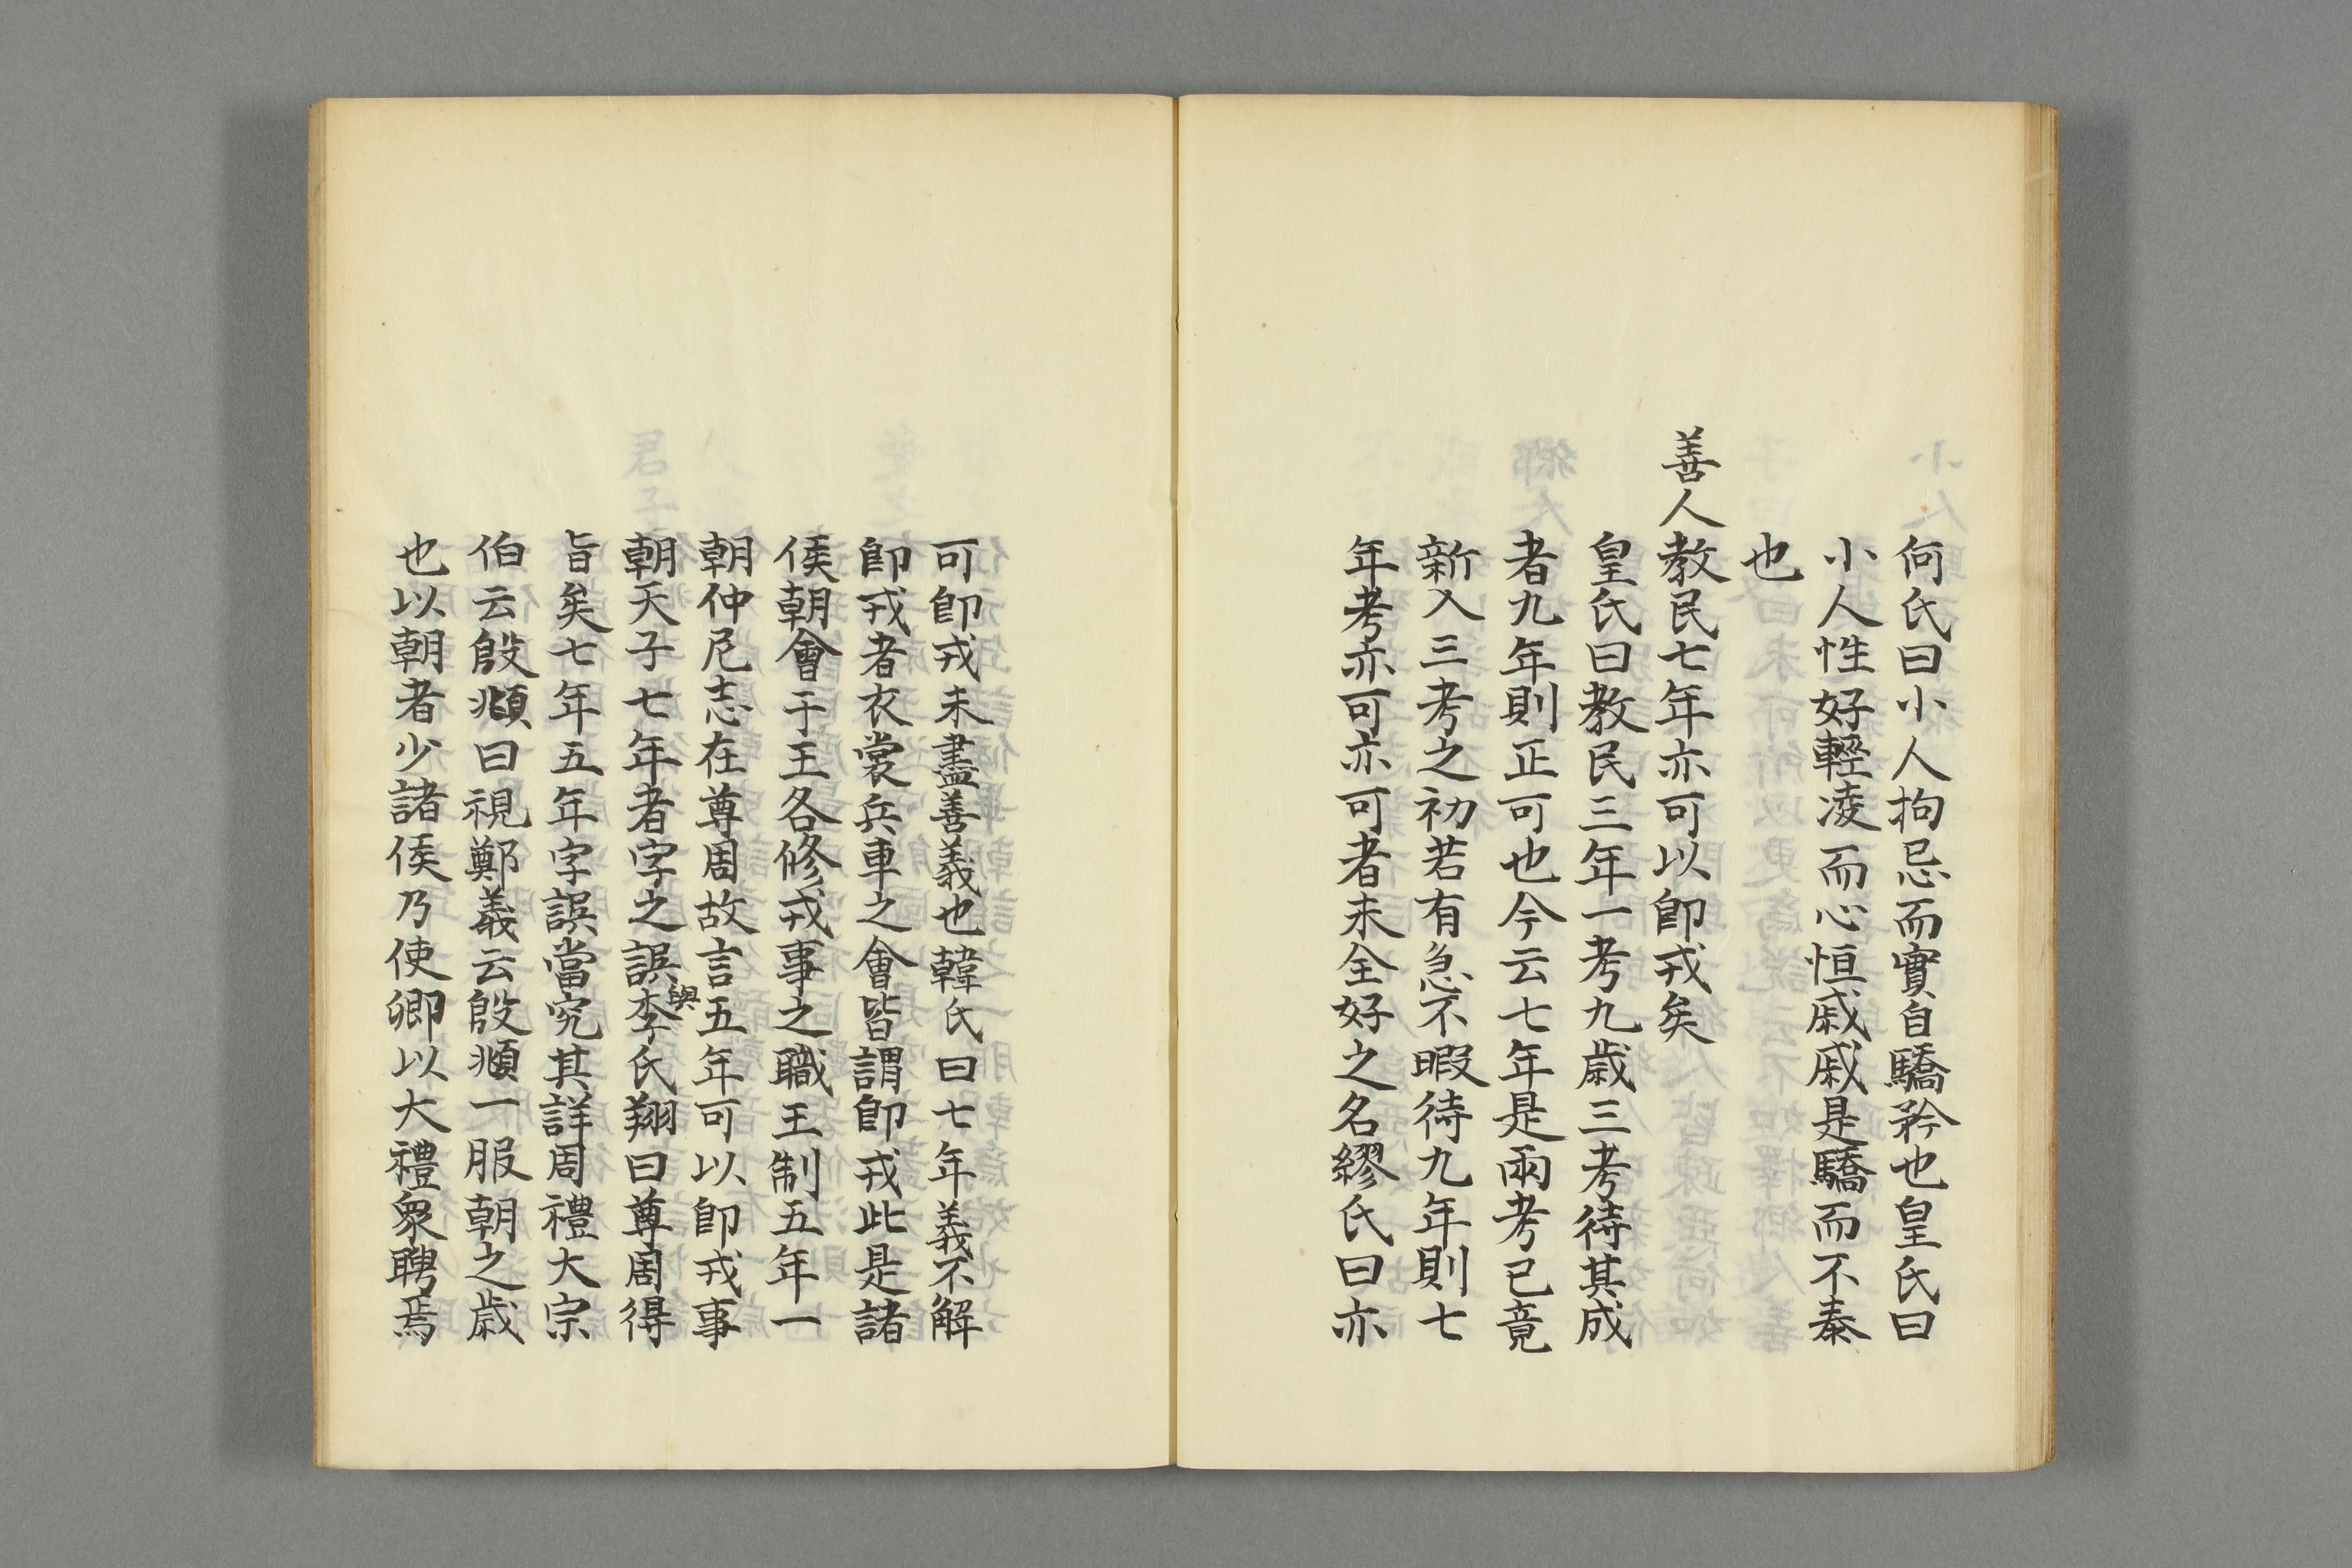 何氏曰小人拘忌而實自驕矜也皇氏曰
小人性好輕凌而心恒戚戚是驕而不泰
也
善人教民七年亦可以即戎矣
皇氏曰教民三年一考九歲三考待其成
者九年則正可也今云七年是兩考已竟
新入三考之初若有急不暇待九年則七
年考亦可亦可者未全好之名繆氏曰亦
可即戎未盡善義也韓氏曰七年義不解
即戎者衣裳兵車之會皆謂即戎此是諸
侯朝會于王各修戎事之職王制五年一
朝仲尼志在尊周故言五年可以即戎事
朝天子七年者字之誤與李氏翔曰尊周得
旨矣七年五年字誤當究其詳周禮大宗
伯云殷覜曰視鄭義云殷覜一服朝之歲
也以朝者少諸侯乃使卿以大禮衆聘焉